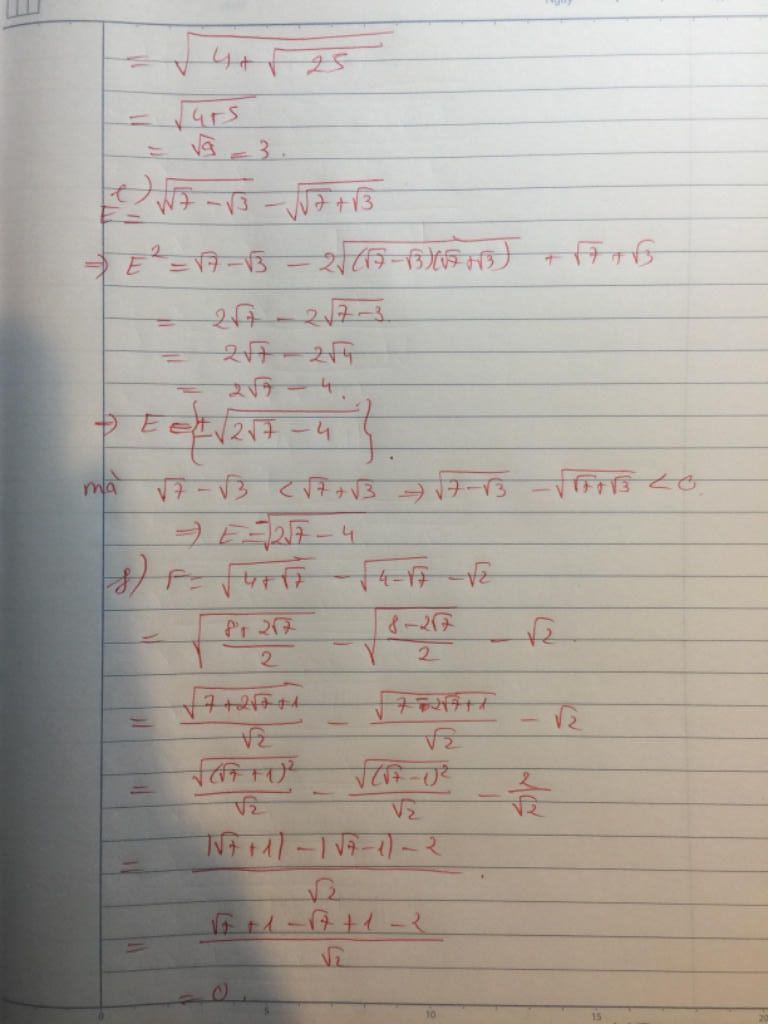 = √(4 + √25)
= √(4+5)
= √9 = 3.
e) √(√7 − √3) − √(√7 + √3)
E =
⇒ E² = √7 − √3 − 2√((√7−√3)(√7+√3)) + √7 + √3
= 2√7 − 2√(7−3)
= 2√7 − 2√4
= 2√7 − 4.
⇒ E = {±√(2√7 − 4)}.
mà √7 − √3 < √7 + √3 ⇒ √(7−√3) − √(√7+√3) < 0.
⇒ E = −√(2√7 − 4)
f) F = √(4+√7) − √(4−√7) − √2
= √((8+2√7)/2) − √((8−2√7)/2) − √2.
= √(7+2√7+1)/√2 − √(7−2√7+1)/√2 − √2
= √((√7+1)²)/√2 − √((√7−1)²)/√2 − 2/√2
= (|√7+1| − |√7−1| − 2)/√2.
= (√7 + 1 − √7 + 1 − 2)/√2
= 0.
0 5 10 15 20